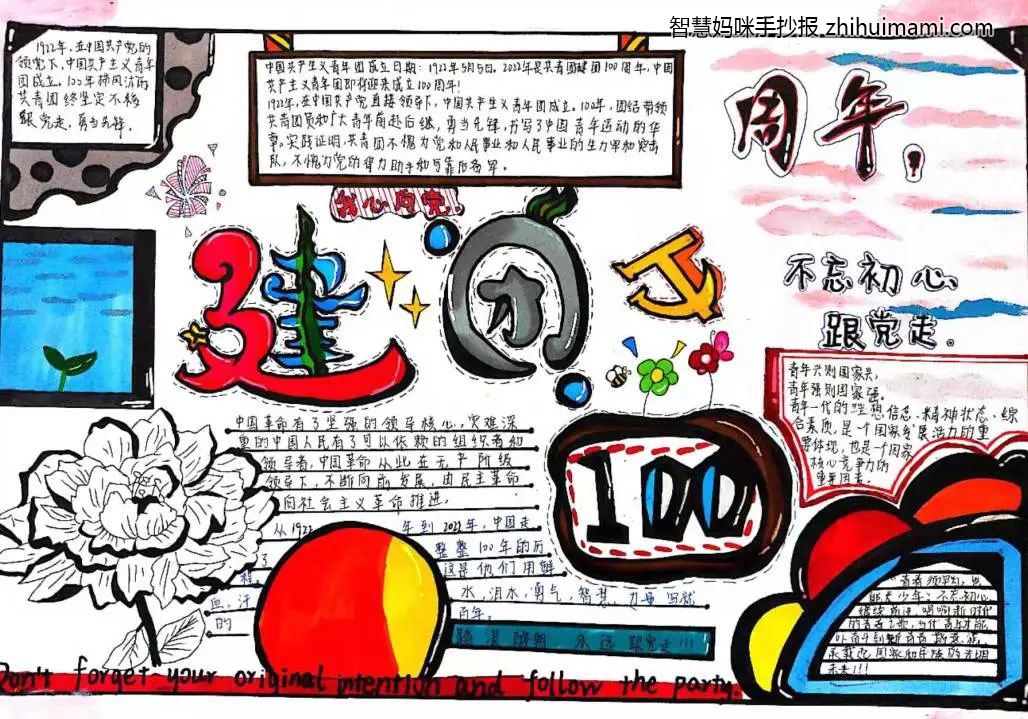 智慧妈咪手抄报 zhihuimami.com
1922年，在中国共产党的
领党下，中国共产主义青年
团成立。100年栉风沐雨
共青团终坚定不移
跟党走，勇当先锋。
中国共产主义青年团成立日期：1922年5月5日。2022年是共青团建团100周年，中国
共产主义青年团即将迎来成立100周年！
1922年，在中国共产党直接领导下，中国共产主义青年团成立。100年，团结带领
共青团员和广大青年前赴后继，勇当先锋，书写了中国青年运动的华
章。实践证明，共青团不愧为党和人民事业和人民事业的生力军和突击
队，不愧为党的得力助手和可靠后备军。
周年！
我心向党
建团
不忘初心
跟党走。
100
青年兴则国家兴，
青年强则国家强。
青年一代的理想信念、精神状态、综
合素质，是一个国家发展活力的重
要体现，也是一个国家
核心竞争力的
重要因素。
中国革命有了坚强的领导核心，灾难深
重的中国人民有了可以依赖的组织者和
领导者，中国革命从此在无产阶级
领导下，不断向前发展，由民主革命
向社会主义革命推进。
从1922年到2022年，中国走
了 整整100年的历
程。 这是他们用鲜
血，汗 水，泪水，勇气，智慧，力量写就
的 百年。
永远跟党走！！！
不忘初心
继续前进，唱响新时代
的青春之歌，当代青年才能
未来！！！
Don't forget your original intention and follow the party.